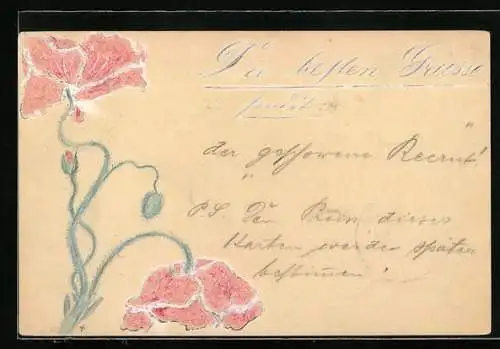 Die besten Grüsse
sendet
der geschorene Recrut!
P.S. Den Preis dieser
Karten werde später
bestimmen!